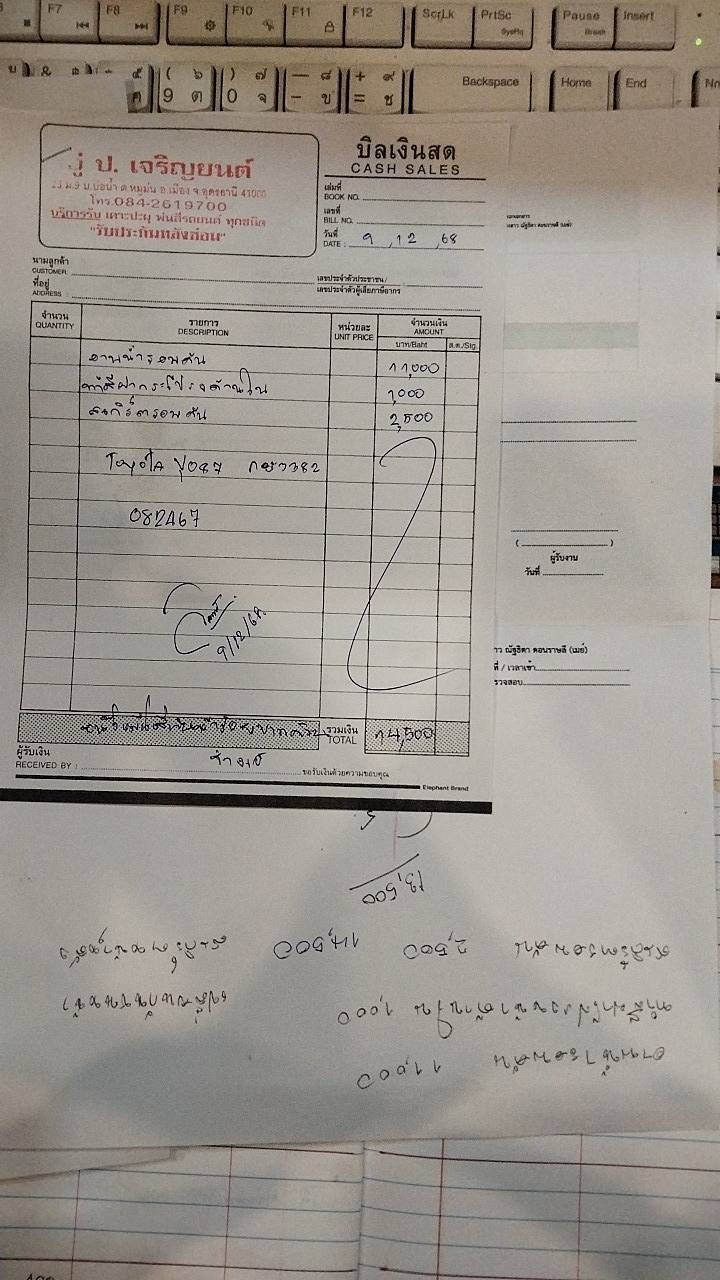 F7 F8 F9 F10 F11 F12 ScrLk PrtSc Pause Insert
SysRq Break
Backspace Home End
ป. เจริญยนต์
โทร.084-2619700
บริการรับ เคาะปะผุ พ่นสีรถยนต์ ทุกชนิด
"รับประกันหลังซ่อม"
บิลเงินสด
CASH SALES
เล่มที่
BOOK NO.
เลขที่
BILL NO.
วันที่
DATE : 9, 12, 68
นามลูกค้า
CUSTOMER
ที่อยู่
ADDRESS :
เลขประจำตัวประชาชน/
เลขประจำตัวผู้เสียภาษีอากร
จำนวน รายการ หน่วยละ จำนวนเงิน
QUANTITY DESCRIPTION UNIT PRICE AMOUNT
บาท/Baht ส.ต./Stg.
อาบน้ำรอบคัน 11,000
ทำสีฝากระโปรงด้านใน 1,000
สเกิร์ตรอบคัน 2,500
ToyoTA
082467
9/12/68
รวมเงิน
TOTAL 14,500
ผู้รับเงิน
RECEIVED BY :
ขอรับเงินด้วยความขอบคุณ
Elephant Brand
(            )
ผู้รับงาน
วันที่
าว ณัฐธิดา ดอนราษลี (เมย์)
ที่ / เวลาเข้า
รวจสอบ
อาบน้ำรอบคัน 11,000
ทำสีฝาโปรงหน้าด้านใน 1,000
สเกิร์ตรอบคัน 2,500 14,500
13,500